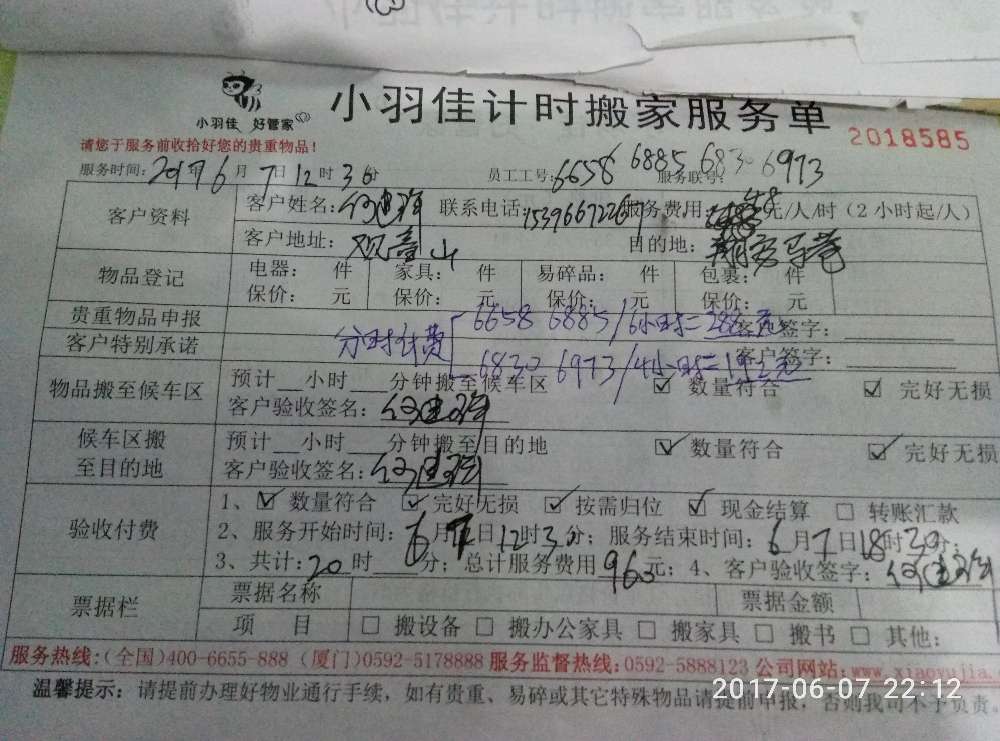 小羽佳 好管家
小羽佳计时搬家服务单
2018585
请您于服务前收拾好您的贵重物品！
服务时间：2017年6月7日12时30分 员工工号：6658 6885 6830 6973 服务联号：
客户资料 客户姓名： 联系电话： 服务费用： 元/人/时（2小时起/人）
客户地址：观音山 目的地：
物品登记 电器： 件 家具： 件 易碎品： 件 包裹： 件
保价： 元 保价： 元 保价： 元 保价： 元
贵重物品申报 客户签字：
分时计费
6658 6885/6小时=288元
客户特别承诺 客户签字：
6830 6973/4小时=192元
物品搬至候车区 预计__小时___分钟搬至候车区 ☑ 数量符合 ☑ 完好无损
客户验收签名：
候车区搬至目的地 预计__小时___分钟搬至目的地 ☑ 数量符合 ☑ 完好无损
客户验收签名：
验收付费 1、☑ 数量符合 ☑ 完好无损 ☑ 按需归位 ☑ 现金结算 □ 转账汇款
2、服务开始时间：6月7日12时30分；服务结束时间：6月7日18时30分；
3、共计：20时___分；总计服务费用960元；4、客户验收签字：
票据栏 票据名称 票据金额
项 目 □ 搬设备 □ 搬办公家具 □ 搬家具 □ 搬书 □ 其他：
服务热线：（全国）400-6655-888（厦门）0592-5178888 服务监督热线：0592-5888123 公司网站：www.xiaoyujia.
温馨提示：请提前办理好物业通行手续，如有贵重、易碎或其它特殊物品请提前申报，否则我司不予负责。
2017-06-07 22:12